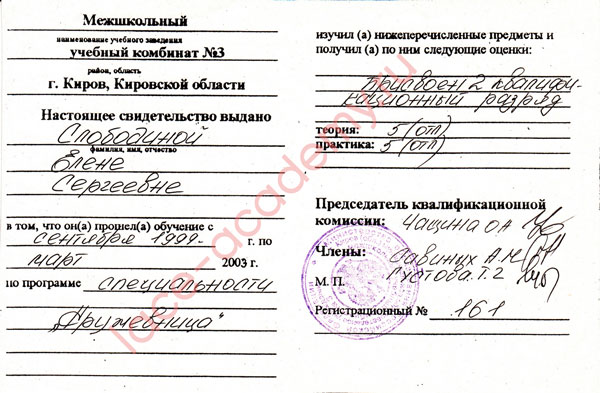 Межшкольный
наименование учебного заведения
учебный комбинат №3
район, область
г. Киров, Кировской области
Настоящее свидетельство выдано
Слободиной
фамилия, имя, отчество
Елене
Сергеевне
в том, что он(а) прошел(а) обучение с
сентября 1999 г. по
март 2003 г.
по программе специальности
„Кружевница"
изучил (а) нижеперечисленные предметы и
получил (а) по ним следующие оценки:
Присвоен 2 квалифи-
кационный разряд
теория: 5 (отл)
практика: 5 (отл)
Председатель квалификационной
комиссии: Чащина О А
Члены: Савиных А. М
М. П. Густова. Т. Г
Регистрационный № 161
lace-academy.ru